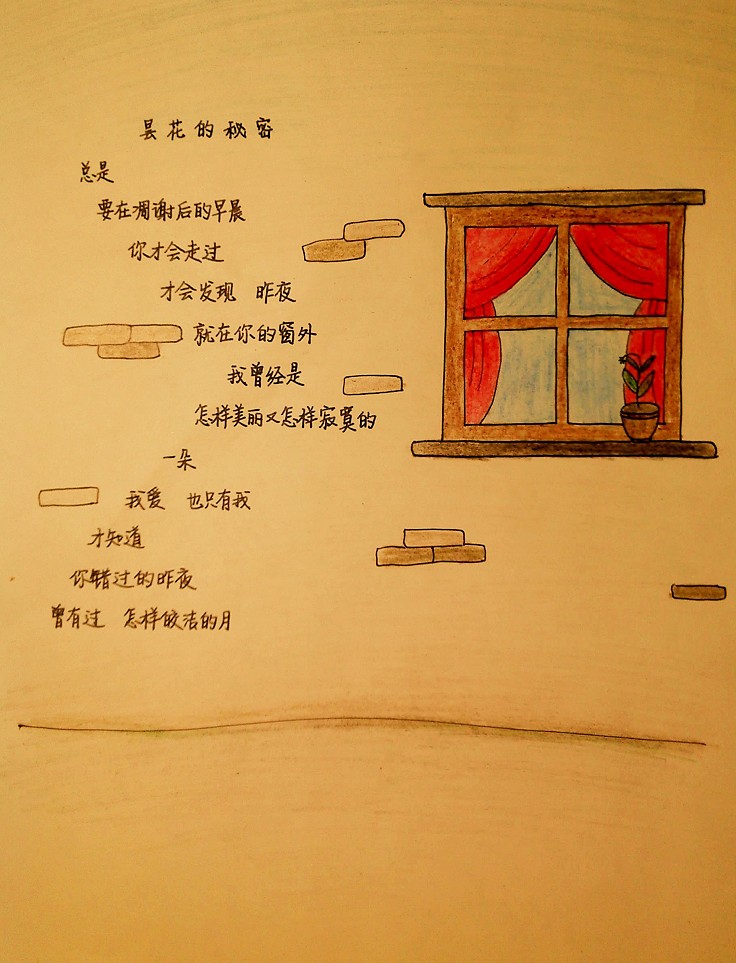 昙花的秘密
总是
要在凋谢后的早晨
你才会走过
才会发现 昨夜
就在你的窗外
我曾经是
怎样美丽又怎样寂寞的
一朵
我爱 也只有我
才知道
你错过的昨夜
曾有过 怎样皎洁的月